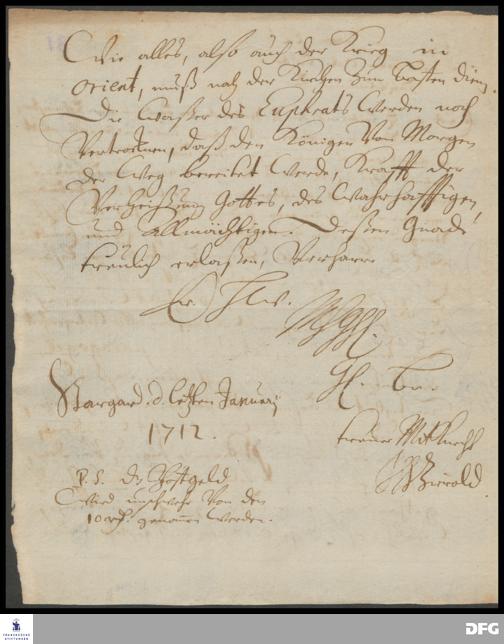 Wie alles, also auch der Krieg in
Orient, muß noch der Kirchen zum besten dienen.
Die Waßer des Euphrats werden noch
vertrocknen, daß den Königen vom Morgen
der Weg bereitet werde, Krafft der
Verheißung Gottes, des Wahrhafftigen,
und Allmächtigen. Deßen Gnade
treulich erlaßen, verharre
Ew.
Stargard. d. letzten Januarij
1712.
treuer Mitknecht
P. S. Das Postgeld
Wird von den
10 genommen werden.
FRANCKESCHE
STIFTUNGEN
DFG